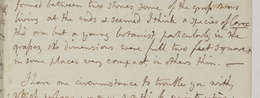 formed between two stones some of the grapes were
living at the ends & seemed I think a species of
this am but a young botanist particularly in the
grapes, the dimensions were full two feet square &
in some places very compact in others thin. —
I have one circumstance to trouble you with,